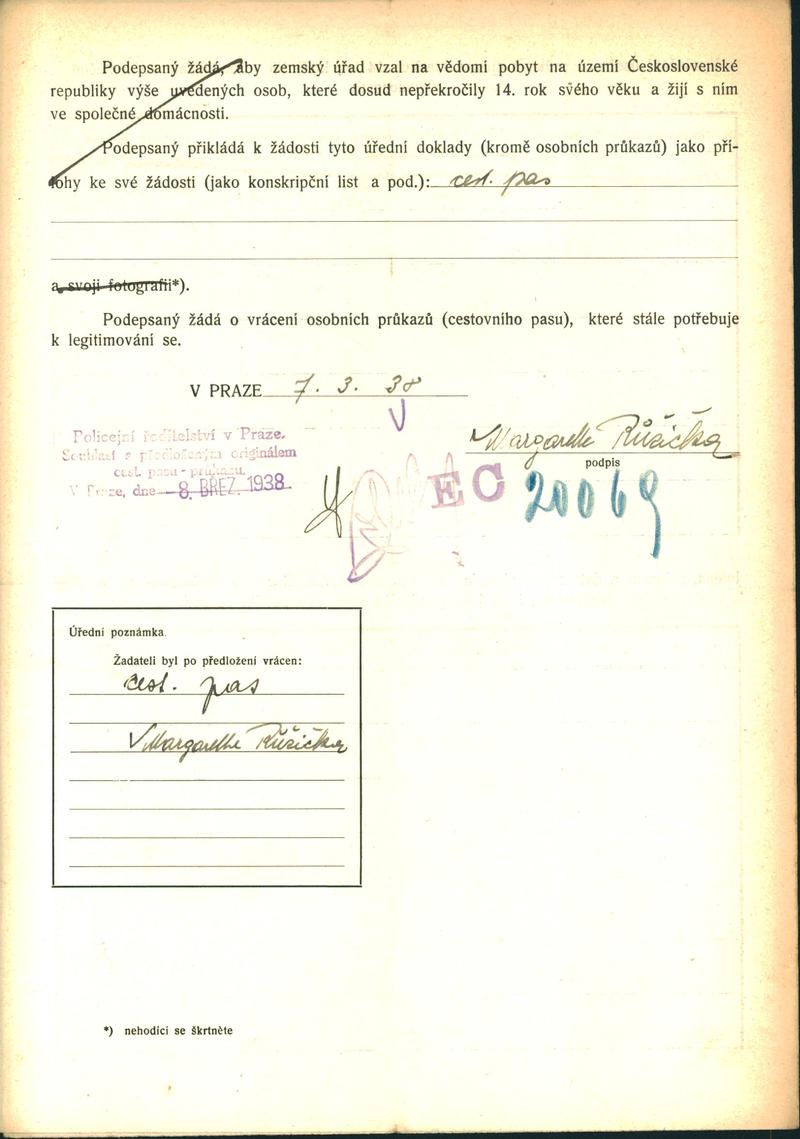 Podepsaný žádá, aby zemský úřad vzal na vědomí pobyt na území Československé
republiky výše uvedených osob, které dosud nepřekročily 14. rok svého věku a žijí s ním
ve společné domácnosti.
Podepsaný přikládá k žádosti tyto úřední doklady (kromě osobních průkazů) jako pří-
lohy ke své žádosti (jako konskripční list a pod.): cest. pas
a svoji fotografii*).
Podepsaný žádá o vrácení osobních průkazů (cestovního pasu), které stále potřebuje
k legitimování se.
V PRAZE 7. 3. 38
Margarethe Růžička
podpis
Policejní ředitelství v Praze.
Souhlasí s předloženým originálem
cest. pasu - průkazu.
V Praze, dne 8. BŘEZ. 1938
EC 20069
Úřední poznámka.
Žadateli byl po předložení vrácen:
cest. pas
Margarethe Růžička
*) nehodící se škrtněte